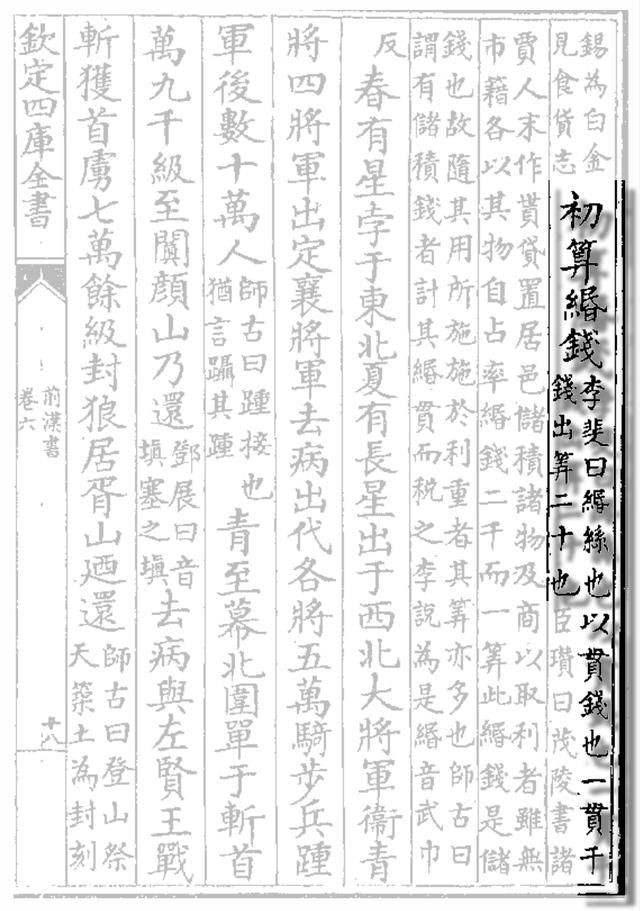 錫為白金
見食貨志
初筭緡錢
李斐曰緡絲也以貫錢也一貫千
錢出筭二十也臣瓚曰茂陵書諸
賈人末作貰貸置居邑儲積諸物及商以取利者雖無
市籍各以其物自占率緡錢二千而一筭此緡錢是儲
錢也故隨其用所施施於利重者其筭亦多也師古曰
謂有儲積錢者計其緡貫而稅之李說為是緡音武巾
反
春有星孛于東北夏有長星出于西北大將軍衞青
將四將軍出定襄將軍去病出代各將五萬騎步兵踵
軍後數十萬人
師古曰踵接也
猶言躡其踵
青至幕北圍單于斬首
萬九千級至闐顔山乃還
鄧展曰音
塡塞之塡
去病與左賢王戰
斬獲首虜七萬餘級封狼居胥山廼還
師古曰登山祭
天築土為封刻
欽定四庫全書
前漢書
卷六
十八